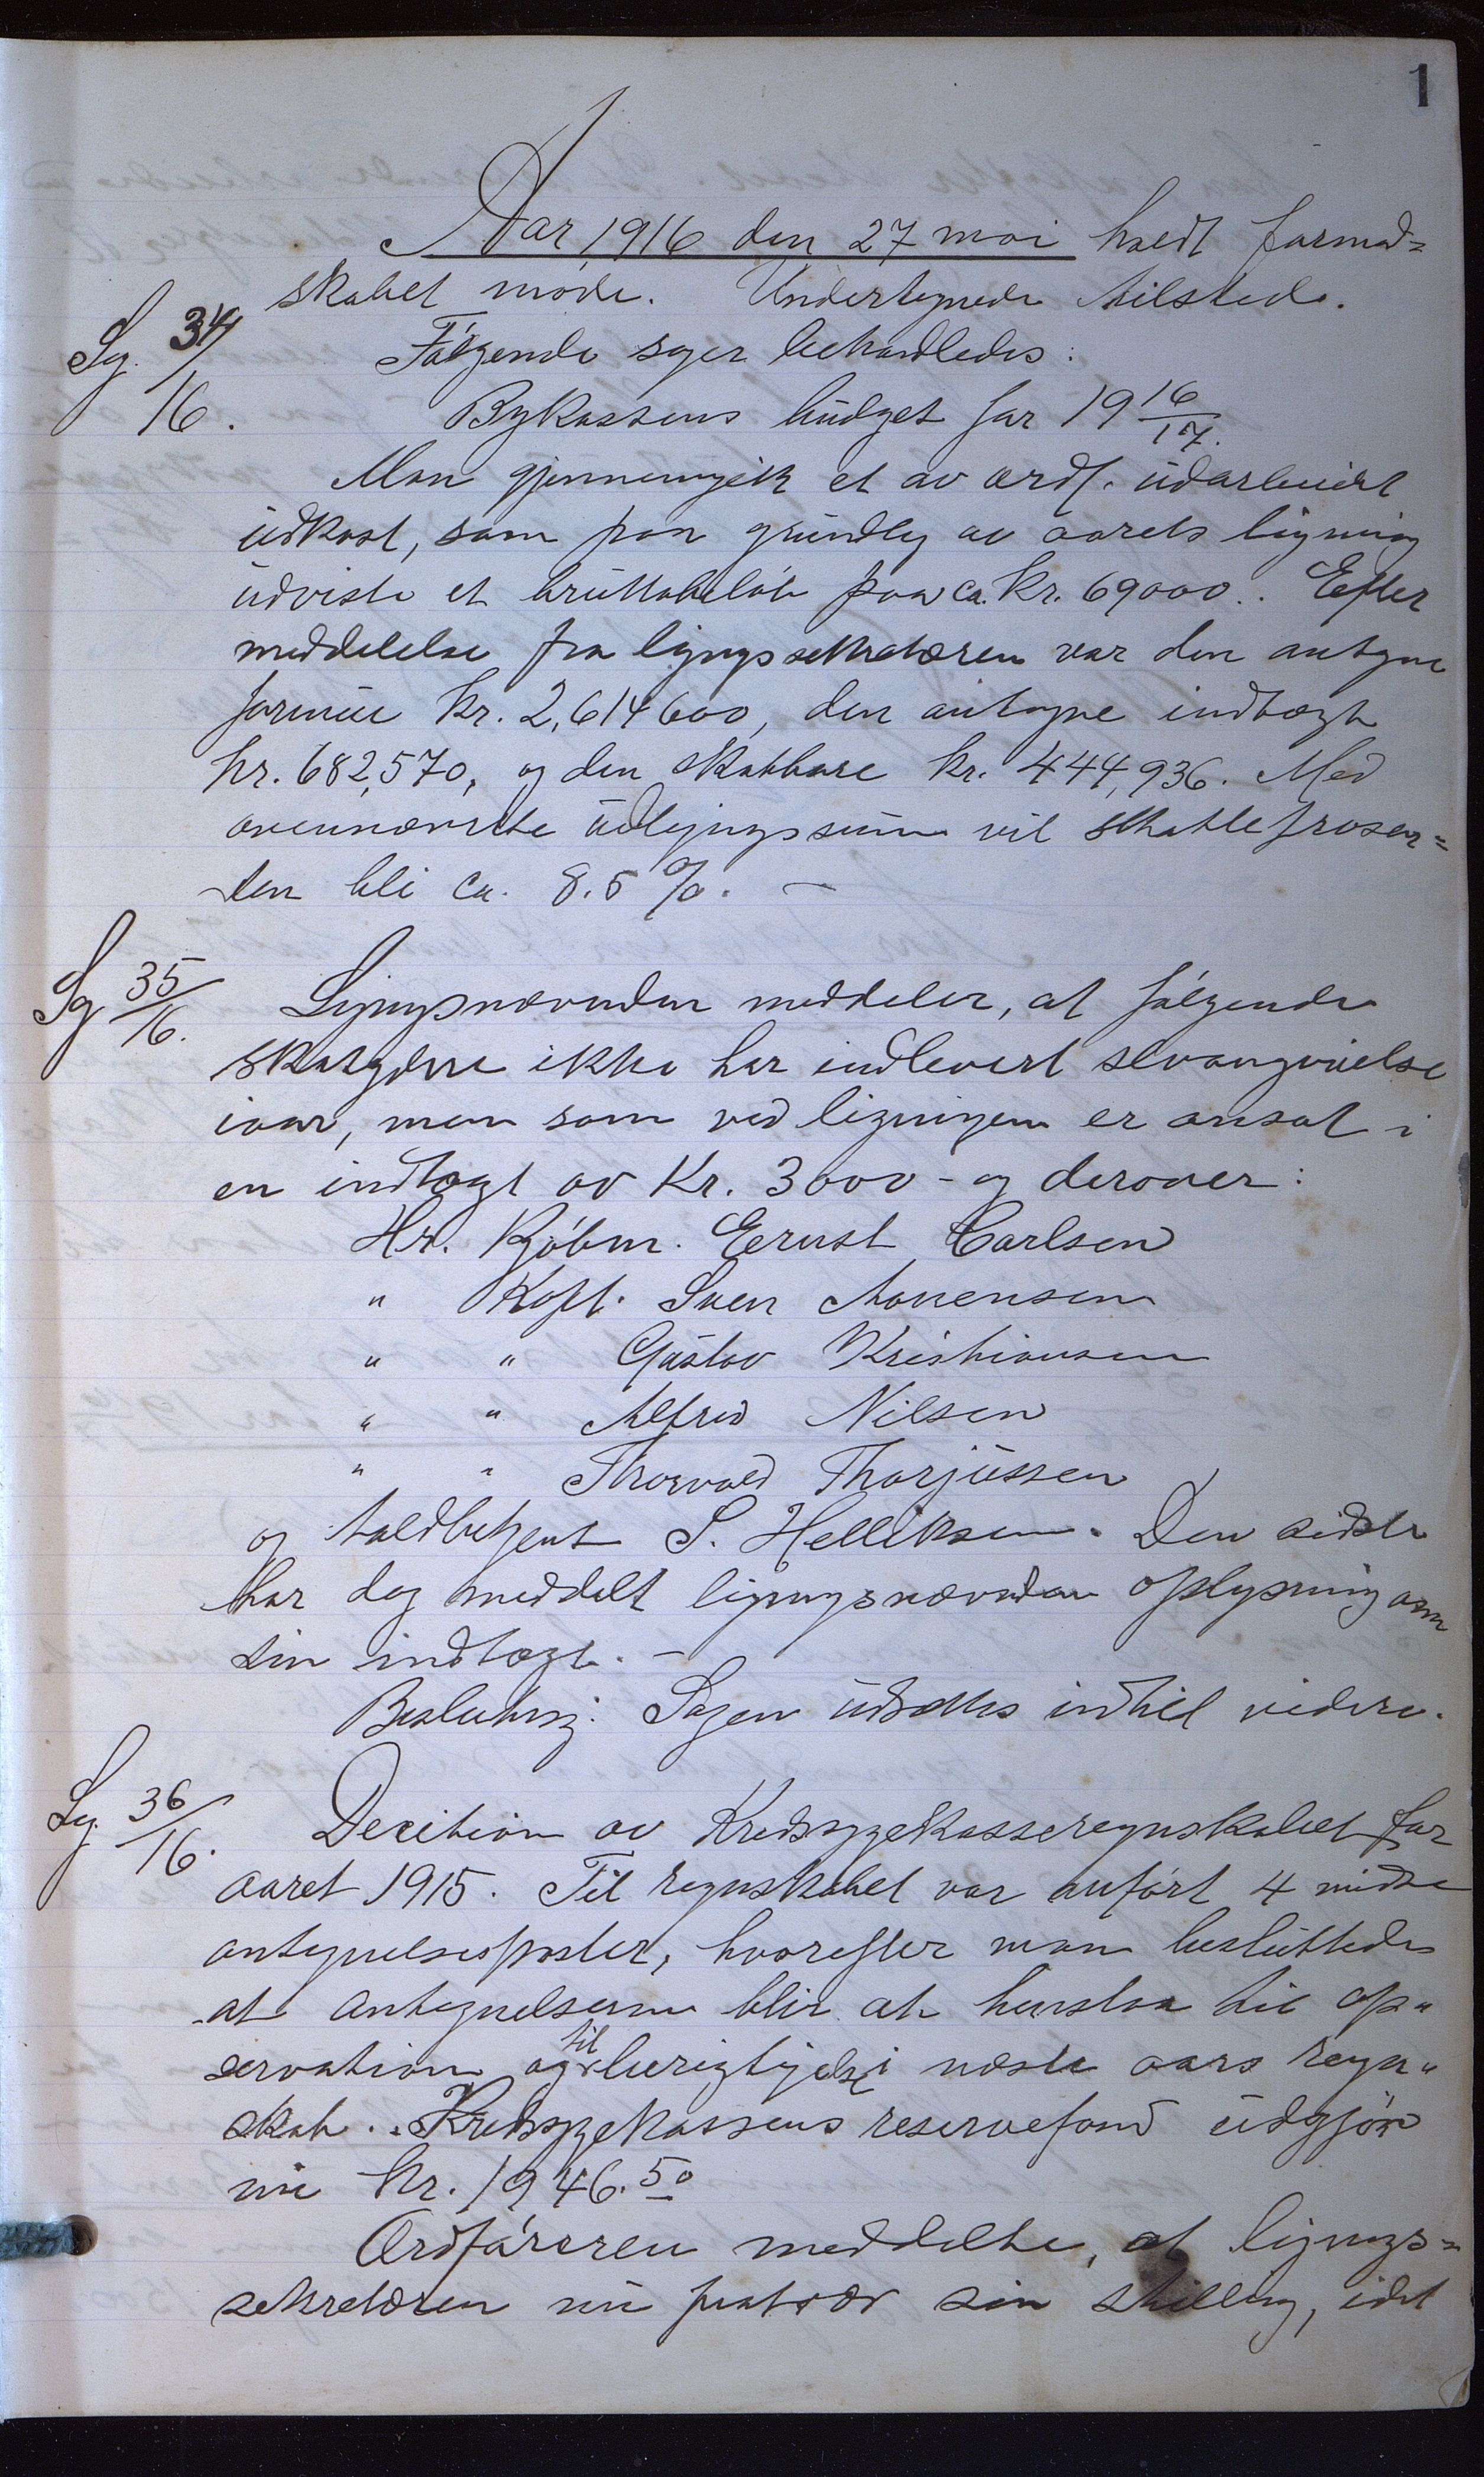 1
Aar 1916 den 27 mai holdt formand=
skabet møde. Undertegnede tilstede.
Sg. 34/16.
Følgende sager behandledes:
Bykassens budget for 1916/17.
Man gjennemgik et av ordf. udarbeidet
udkast, som paa grundlag av aarets ligning
udviste et bruttobeløb paa ca. kr. 69000.. Efter
meddelelse fra ligngssekretæren var den antagne
formue kr. 2,614600, den antagne indtægt
kr. 682,570, og den skatbare kr. 444,936. Med
ovennævnte udligngssum vil skatteprosen=
ten bli ca. 8.5 %. —
Sg 35/16.
Ligngsnævnden meddeler, at følgende
skatydere ikke har indlevert selvangivelse
iaar, men som ved ligningen er ansat i
en indtægt av Kr. 3000 - og derover:
Hr. Kjøbm. Ernst Carlsen
" Kapt. Sven Aanensen
" " Gustav Kristiansen
" " Alfred Nilsen
" " Thorvald Thorjussen
og toldbetjent S. Helliksen. Den sidste
har dog meddelt ligngsnævnden oplysning om
sin indtægt. —
Beslutning: Sagen udsættes indtil videre.
Sg. 36/16.
Decition av Kredssygekasseregnskabet for
aaret 1915. Til regnskabet var anført 4 mindre
antegnelsesposter, hvorefter man besluttedes
at antegnelserne blir at henstaa til ops"
servation og til berigtigelse i næste aars regn"
skab. . Kredssygekassens reservefond udgjør
nu kr. 1946.50
Ordføreren meddelte, at ligngs=
sekretæren nu fratræder sin stilling, idet